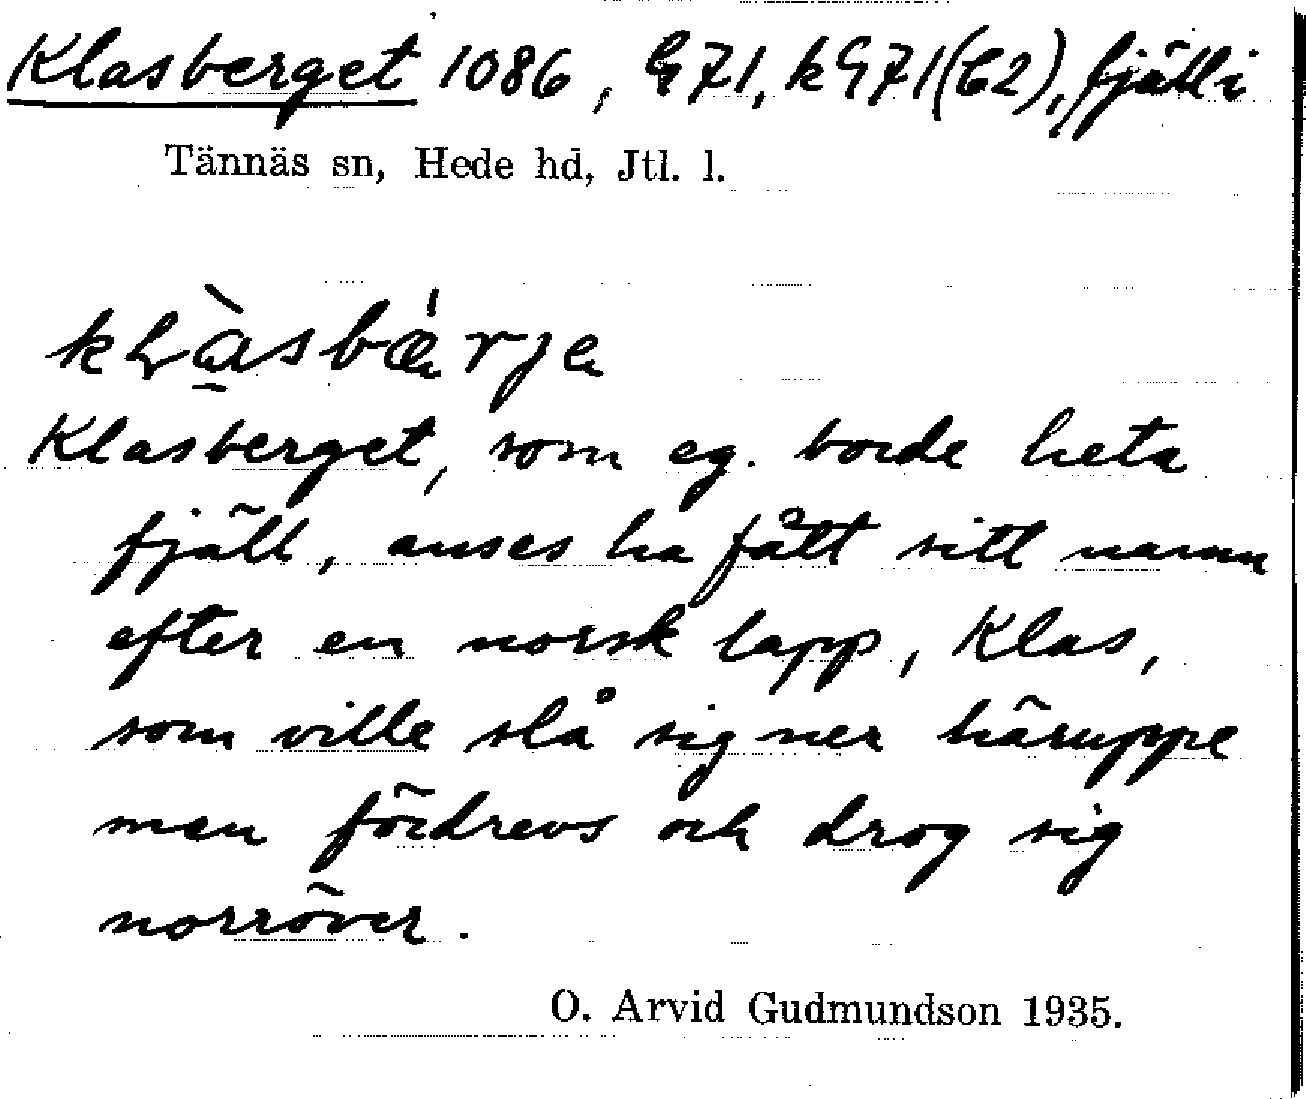 Klasberget 1086, G71, kG71(62), fjäll i
Tännäs sn, Hede hd, Jtl. l.
Klasberget, som eg. borde heta
fjäll, anses ha fått sitt namn
efter en norsk lapp, Klas,
som ville slå sig ner häruppe
men fördrevs och drog sig
norröver.
O. Arvid Gudmundson 1935.